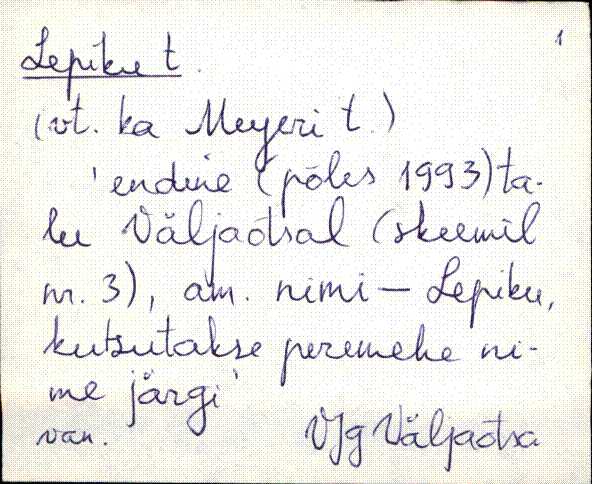 1
Lepiku t.
(vt. ka Meyeri t.)
'endine (põles 1993) ta-
lu Väljaotsal (skeemil
nr. 3), am. nimi — Lepiku,
kutsutakse peremehe ni-
me järgi'
van. VJg Väljaotsa